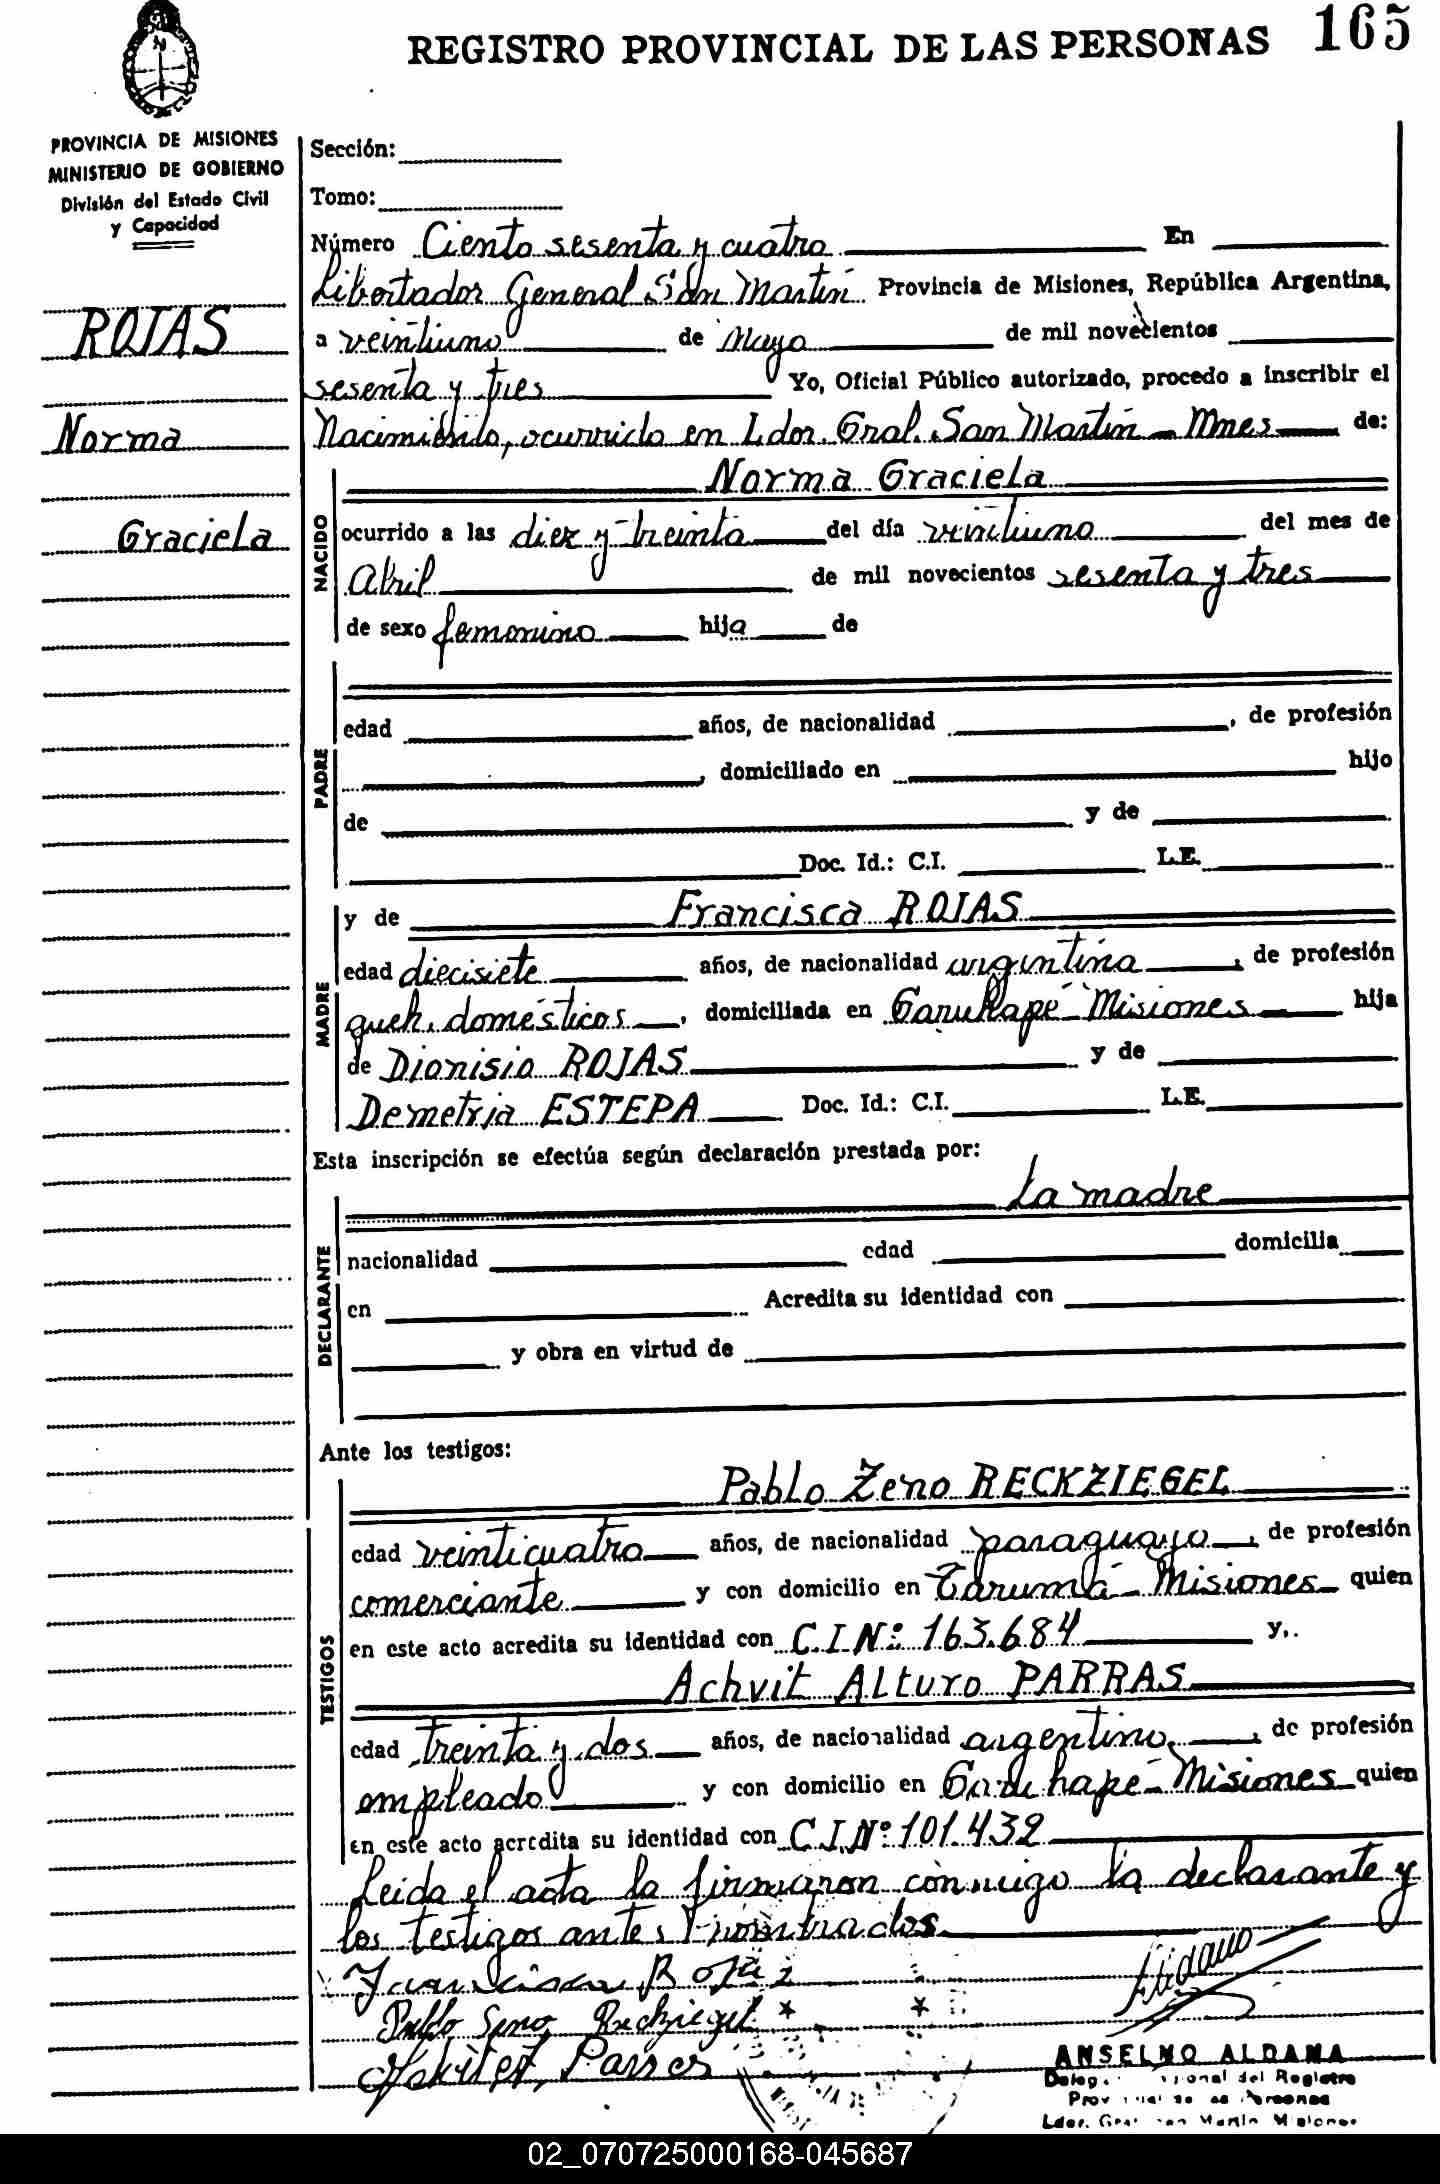 REGISTRO PROVINCIAL DE LAS PERSONAS 165
PROVINCIA DE MISIONES
MINISTERIO DE GOBIERNO
División del Estado Civil
y Capacidad
ROJAS
Norma
Graciela
Sección:
Tomo:
Número Ciento sesenta y cuatro En
Libertador General San Martín Provincia de Misiones, República Argentina,
a veintiuno de Mayo de mil novecientos
sesenta y tres Yo, Oficial Público autorizado, procedo a inscribir el
Nacimiento, ocurrido en Ldor. Gral. San Martín - Mnes de:
NACIDO
Norma Graciela
ocurrido a las diez y treinta del día veintiuno del mes de
Abril de mil novecientos sesenta y tres
de sexo femenino hija de
PADRE
edad años, de nacionalidad , de profesión
, domiciliado en hijo
de y de
Doc. Id.: C.I. L.E.
MADRE
y de Francisca ROJAS
edad diecisiete años, de nacionalidad argentina , de profesión
queh. domésticos , domiciliada en Garuhapé - Misiones hija
de Dionisio ROJAS y de
Demetria ESTEPA Doc. Id.: C.I. L.E.
Esta inscripción se efectúa según declaración prestada por:
DECLARANTE
La madre
nacionalidad edad domicilia
en Acredita su identidad con
y obra en virtud de
Ante los testigos:
TESTIGOS
Pablo Zeno RECKZIEGEL
edad veinticuatro años, de nacionalidad paraguayo , de profesión
comerciante y con domicilio en Tarumá - Misiones quien
en este acto acredita su identidad con C.I Nº 163.684 y,.
Achvit Alturo PARRAS
edad treinta y dos años, de nacionalidad argentino , de profesión
empleado y con domicilio en Garuhapé - Misiones quien
en este acto acredita su identidad con C.I.Nº 101.432
Leida el acta la firmaron conmigo la declarante y
los testigos antes nombrados
Francisca Rojas
Pablo Seno Reckziegel
Parras
Aldana
ANSELMO ALDANA
del Registro
Personas
Ldor. Gral San Martín Misiones
02_070725000168-045687